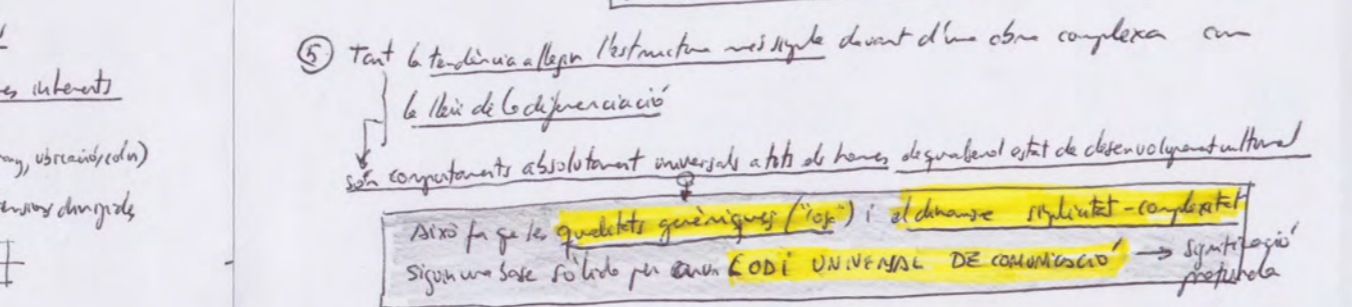 es inherents
ubicació, color)
⑤ Tant la tendència a llegir l'estructura més simple davant d'una obra complexa com
la llei de la diferenciació
són comportaments absolutament universals a tots els homes de qualsevol estat de desenvolupament cultural
Això fa que les qualitats genèriques ("iok") i el dinamisme simplicitat-complexitat
siguin una base sòlida per a un CODI UNIVERSAL DE COMUNICACIÓ → significació
profunda